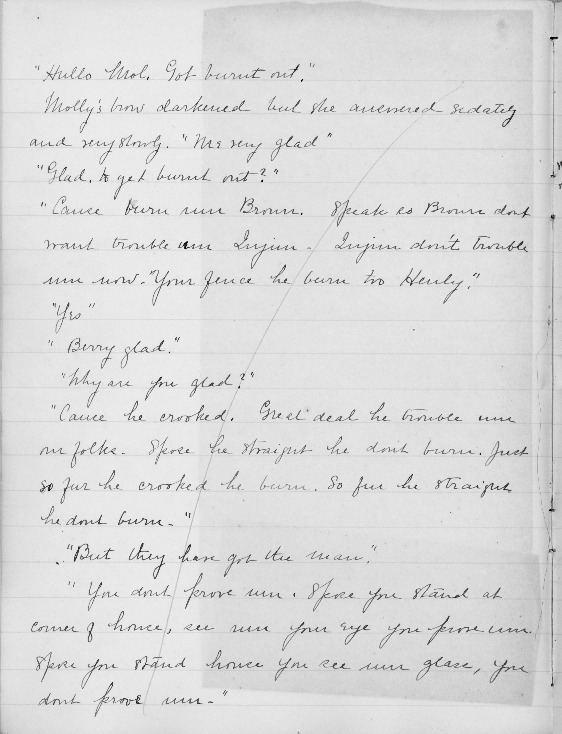 "Hullo Mol. Got burnt out."
Molly's brow darkened but she answered sedately
and very slowly. "Me very glad"
"Glad. to get burnt out?"
"Cause burn um Brown. Speak so Brown dont
want trouble um Injun - Injun don't trouble
um now. "Your fence he burn too Henly."
"Yes"
"Berry glad."
"Why are you glad?"
"Cause he crooked. Great deal he trouble um
our folks. Spose he straight he dont burn. Just
so fur he crooked he burn. So fur he straight
he dont burn-"
"But they have got the man."
"You dont prove um. Spose you stand at
corner of house, see um your eye you prove um.
Spose you stand house you see um glass, you
dont prove um-"